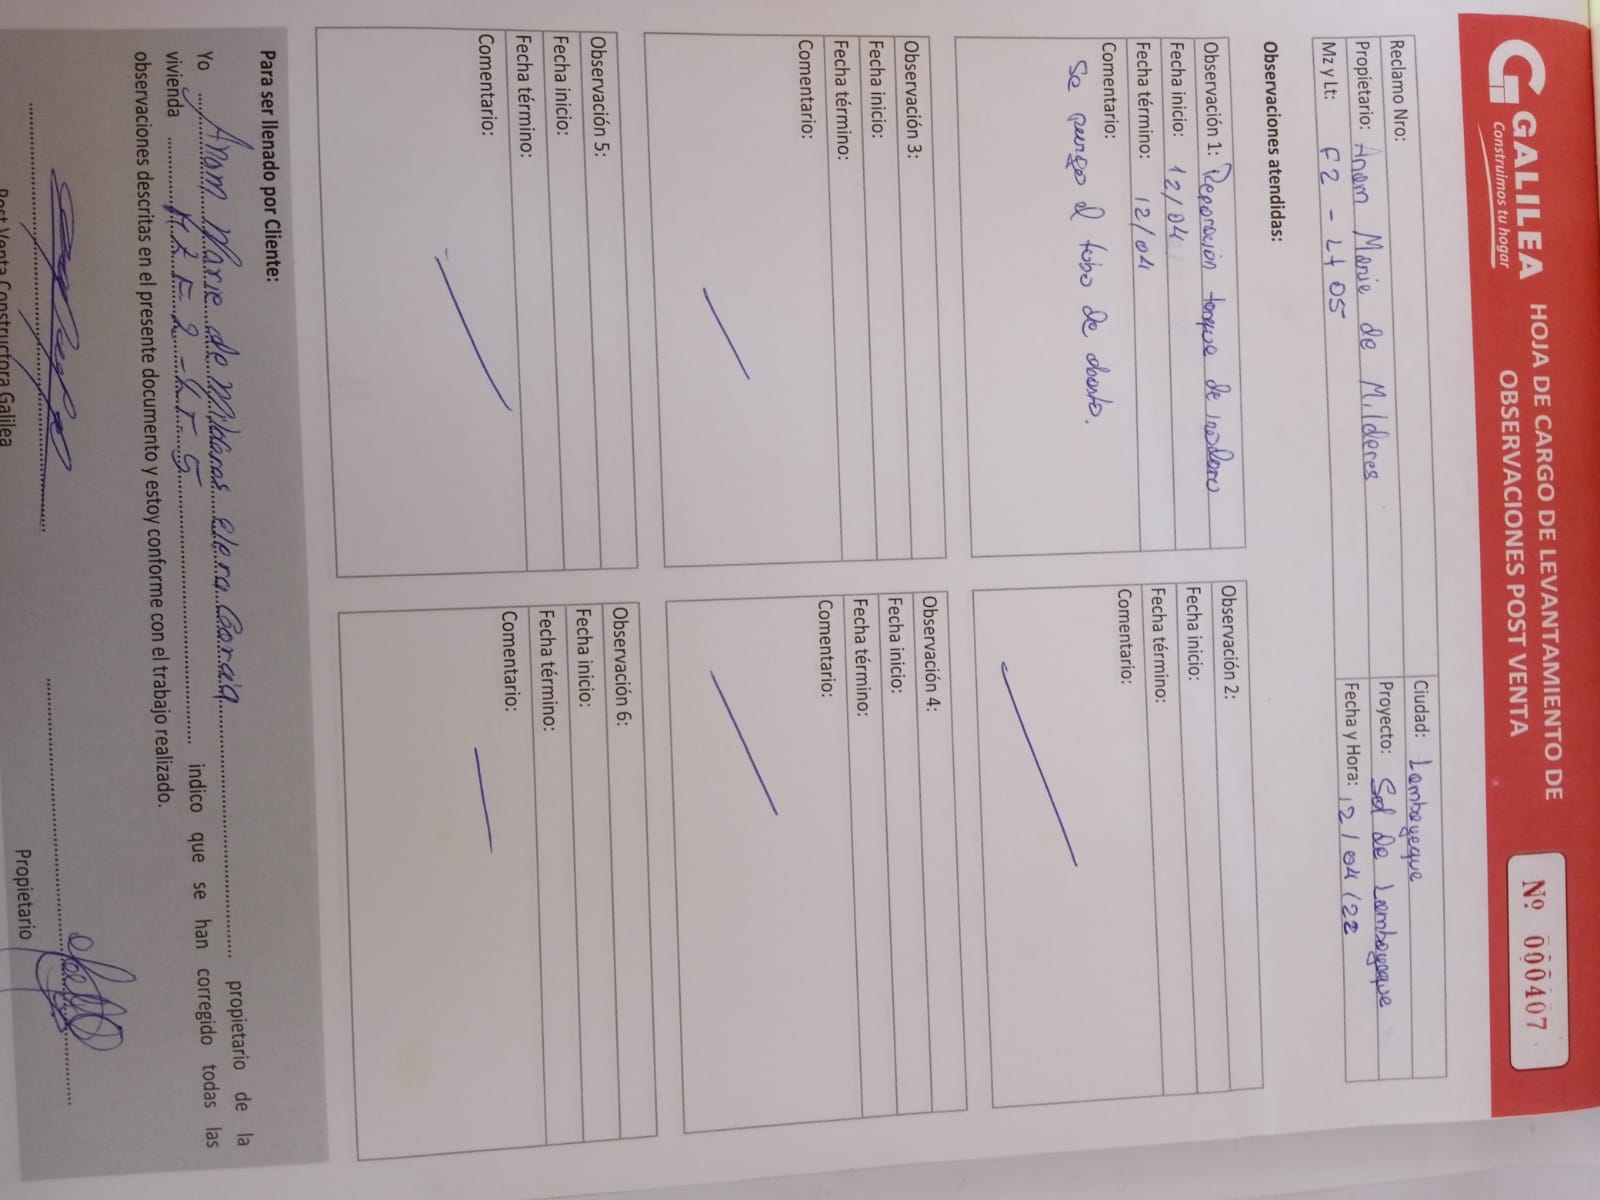 GALILEA
Construimos tu hogar
HOJA DE CARGO DE LEVANTAMIENTO DE
OBSERVACIONES POST VENTA
Nº 000407
Reclamo Nro:
Ciudad: Lambayeque
Propietario: Anam Marie de Milderes
Proyecto: Sol de Lambayeque
Mz y Lt: F2 - Lt 05
Fecha y Hora: 12/04/22
Observaciones atendidas:
Observación 1: Reparación tanque de inodoro
Fecha inicio: 12/04
Fecha término: 12/04
Comentario:
Se purgo el tubo de abasto.
Observación 2:
Fecha inicio:
Fecha término:
Comentario:
Observación 3:
Fecha inicio:
Fecha término:
Comentario:
Observación 4:
Fecha inicio:
Fecha término:
Comentario:
Observación 5:
Fecha inicio:
Fecha término:
Comentario:
Observación 6:
Fecha inicio:
Fecha término:
Comentario:
Para ser llenado por Cliente:
Yo Anam Marie de Milagros Elera Coraia propietario de la
vivienda Mz F2 - LT 5 indico que se han corregido todas las
observaciones descritas en el presente documento y estoy conforme con el trabajo realizado.
Post Venta Constructora Galilea
Propietario